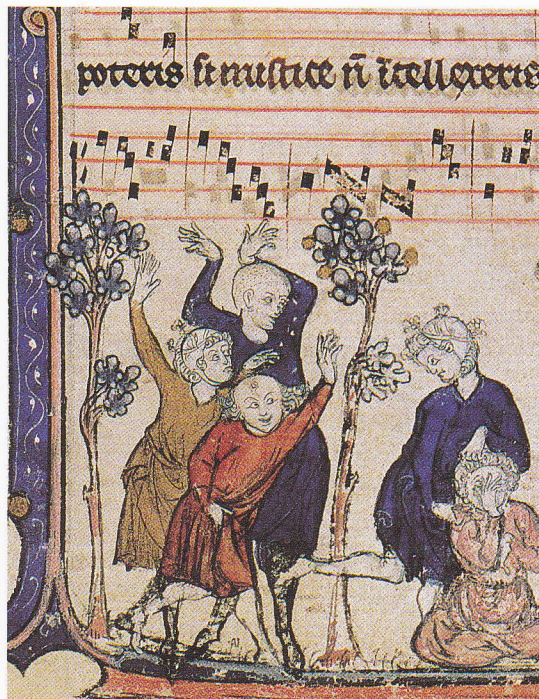 poteris si mistice n̄ ītellexeris